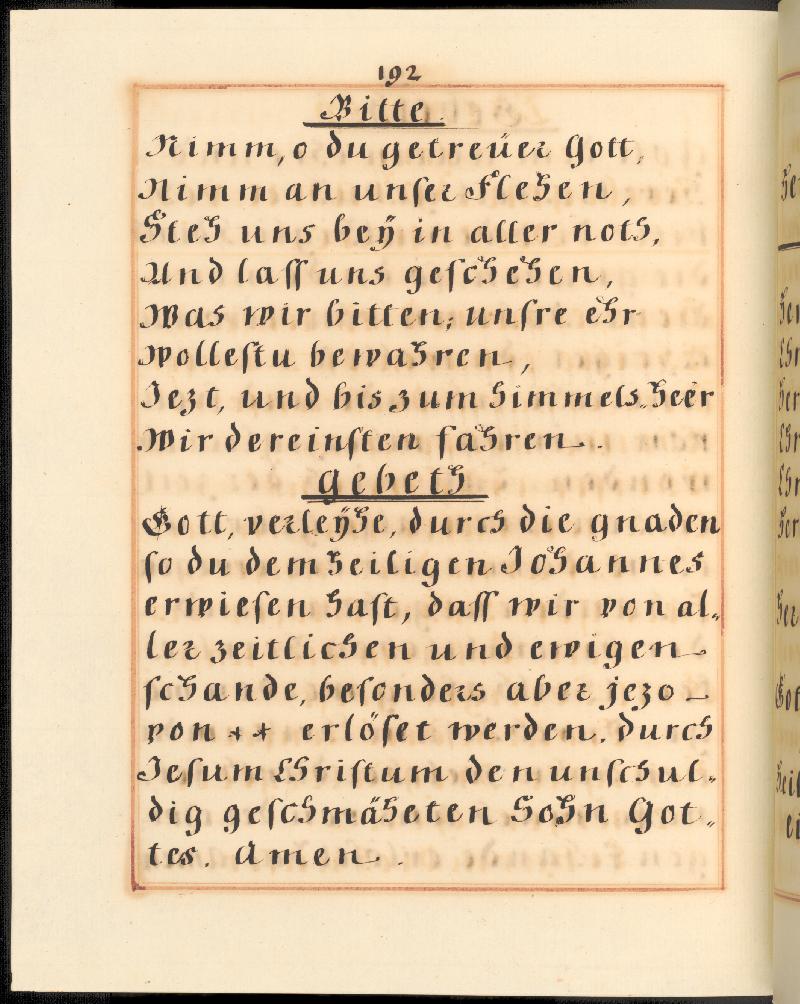 192
Bitte.
Nimm, o du getreüer Gott,
Nimm an unser Flehen,
Steh uns beÿ in aller noth,
Und lass uns geschehen,
Was wir bitten; unsre ehr
wollestu bewahren,
Jezt, und bis zum himmels-heer
Wir dereinsten fahren.
Gebeth
Gott, verleÿhe, durch die gnaden
so du dem heiligen Johannes
erwiesen hast, dass wir von al„
ler zeitlichen und ewigen
schande, besonders aber jezo
von ** erlöset werden. durch
Jesum Christum den unschul„
dig geschmäheten Sohn Got„
tes. Amen.